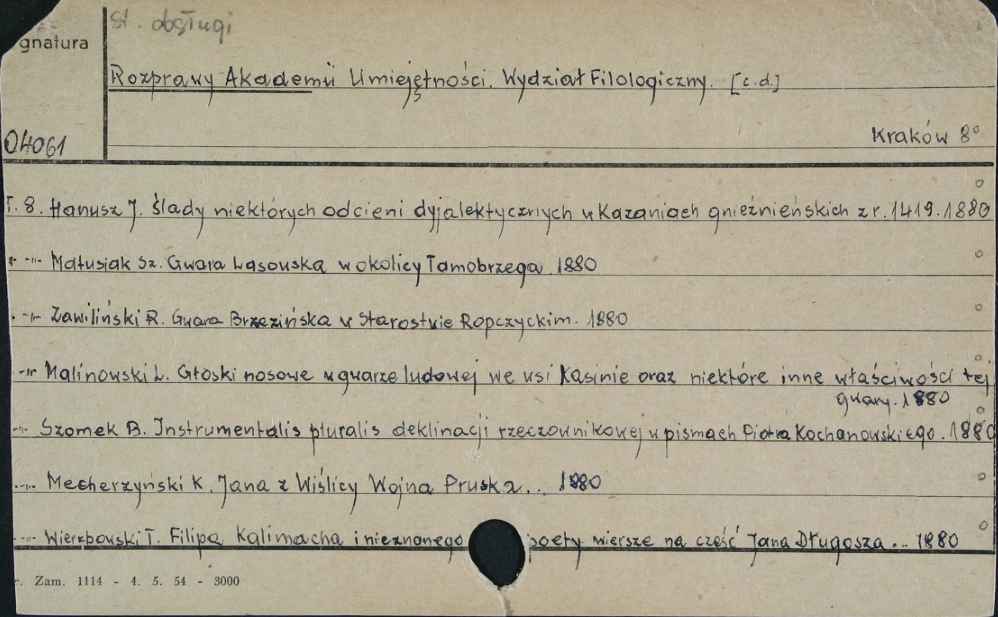 st. obsługi
gnatura
Rozprawy Akademii Umiejętności. Wydział Filologiczny. [c.d.]
04061
Kraków 8°
T. 8. Hanusz J. Ślady niektórych odcieni dyjalektycznych w Kazaniach gnieźnieńskich z r. 1419. 1880
-"- Matusiak Sz. Gwara Lasowska w okolicy Tarnobrzega 1880
-"- Zawiliński R. Gwara Brzezińska w Starostwie Ropczyckim. 1880
-"- Malinowski L. Głoski nosowe w gwarze ludowej we wsi Kasinie oraz niektóre inne właściwości tej
gwary. 1880
-"- Szomek B. Instrumentalis pluralis deklinacji rzeczownikowej w pismach Piotra Kochanowskiego. 1880
-"- Mecherzyński K. Jana z Wiślicy Wojna Pruska... 1880
-"- Wierzbowski T. Filipa Kalimacha i nieznanego poety wiersze na cześć Jana Długosza... 1880
r. Zam. 1114 - 4. 5. 54 - 3000